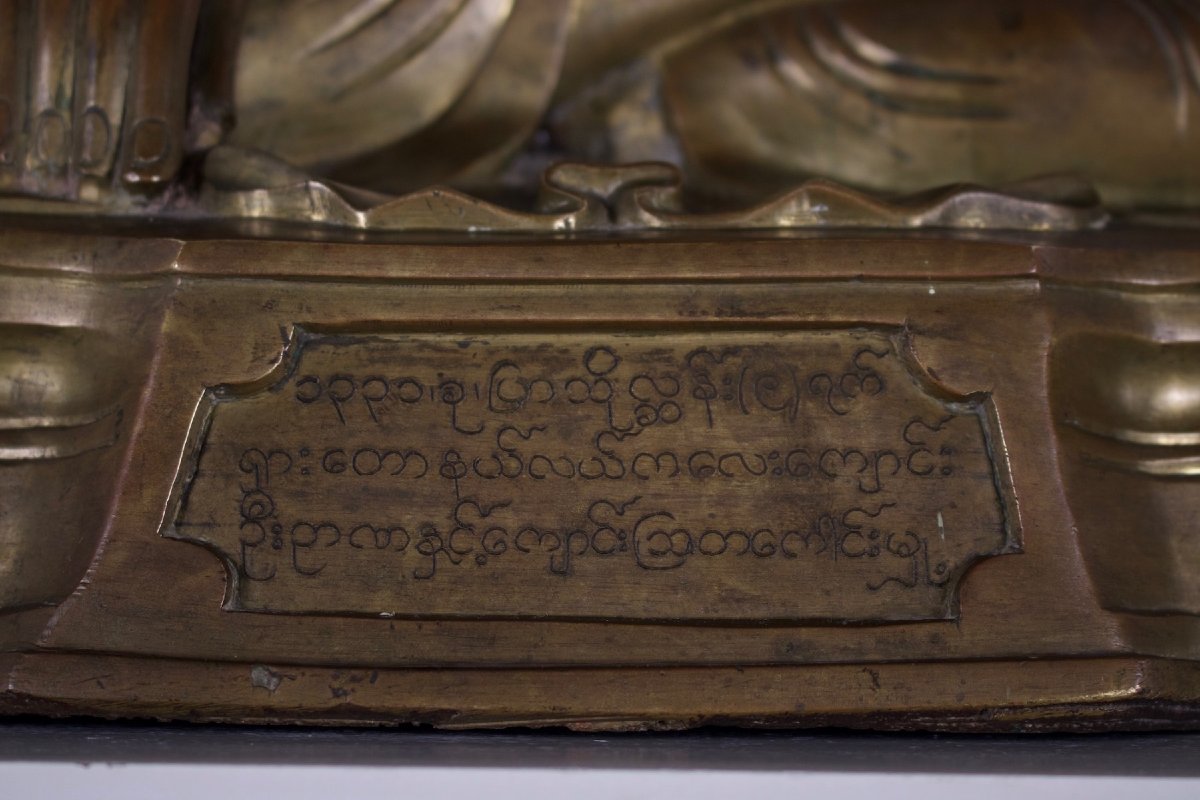 ၁၃၃၁၊ခု၊ပြာသိုလ္ဆန်း(၉)ရက်
ရှားတောနယ်လယ်ကလေးကျောင်း
ဦးဉာဏနှင့်ကျောင်းဩတကေါင်းမျှု့